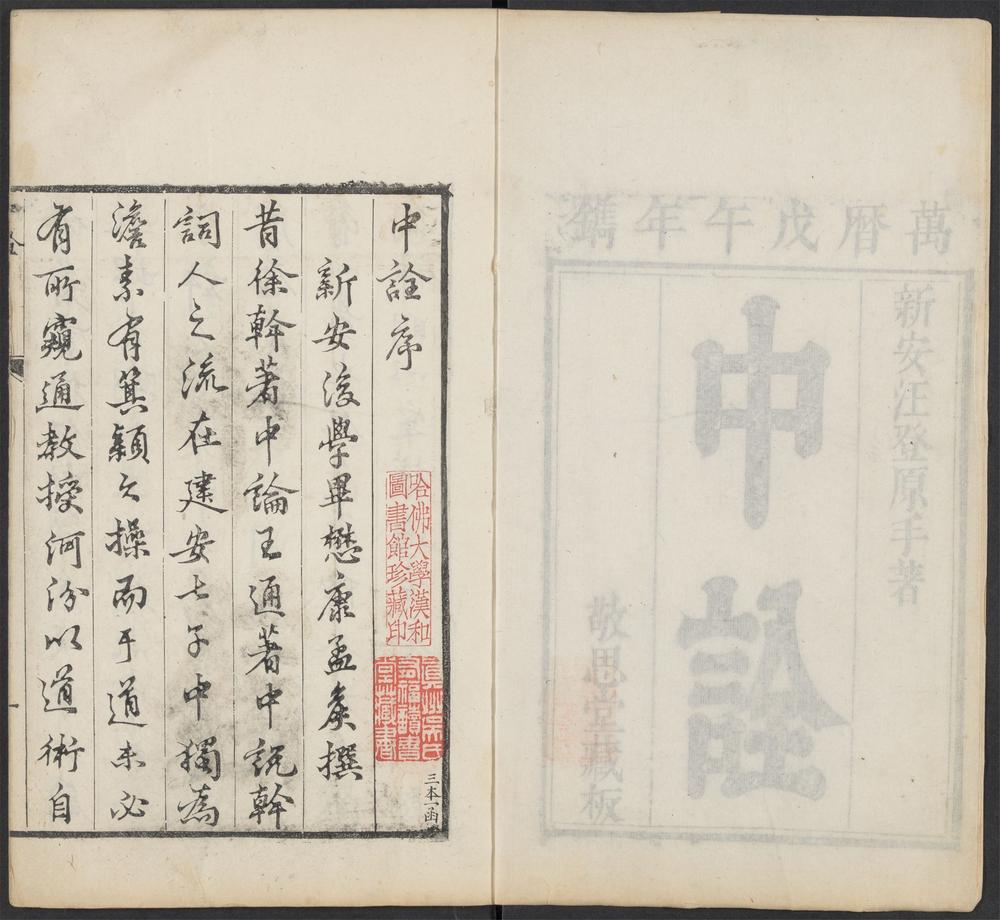 萬曆戊午年鐫
新安汪登原手著
中詮
敬思堂藏板
中詮序
哈佛大學漢和
圖書館珍藏印
真州吳氏
有福讀書
堂藏書
三本一函
新安後學畢懋康孟矦撰
昔徐幹著中論王通著中說幹
詞人之流在建安七子中獨為
澹素有箕潁之操而于道未必
有所窺通教授河汾以道術自